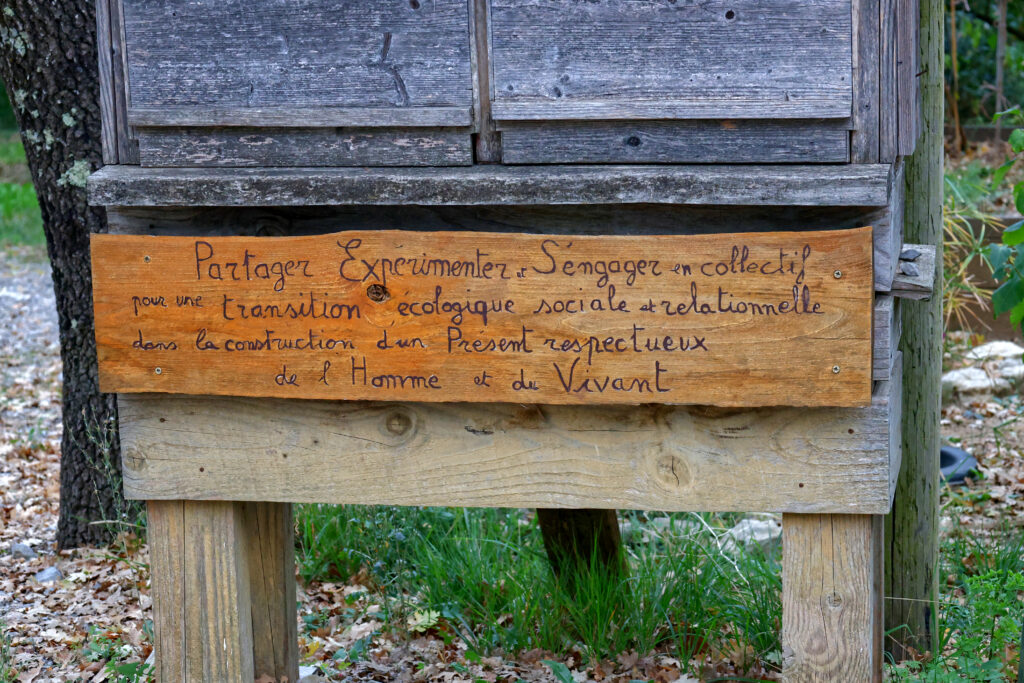 Partager Expérimenter et S'engager en collectif
pour une transition écologique sociale et relationnelle
dans la construction d'un Présent respectueux
de l'Homme et du Vivant